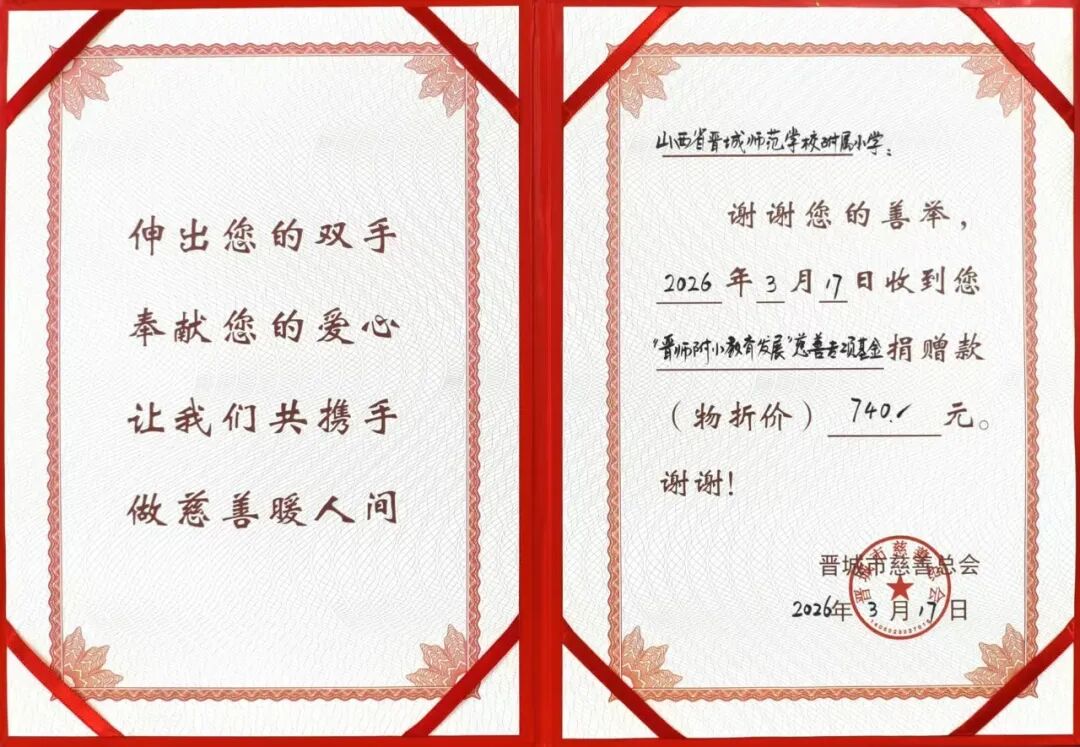 伸出您的双手
奉献您的爱心
让我们共携手
做慈善暖人间
山西省晋城师范学校附属小学：
谢谢您的善举，
2026年3月17日收到您
“晋师附小教育发展”慈善专项基金捐赠款
（物折价）740.1元。
谢谢！
晋城市慈善总会
2026年3月17日
晋城市慈善总会